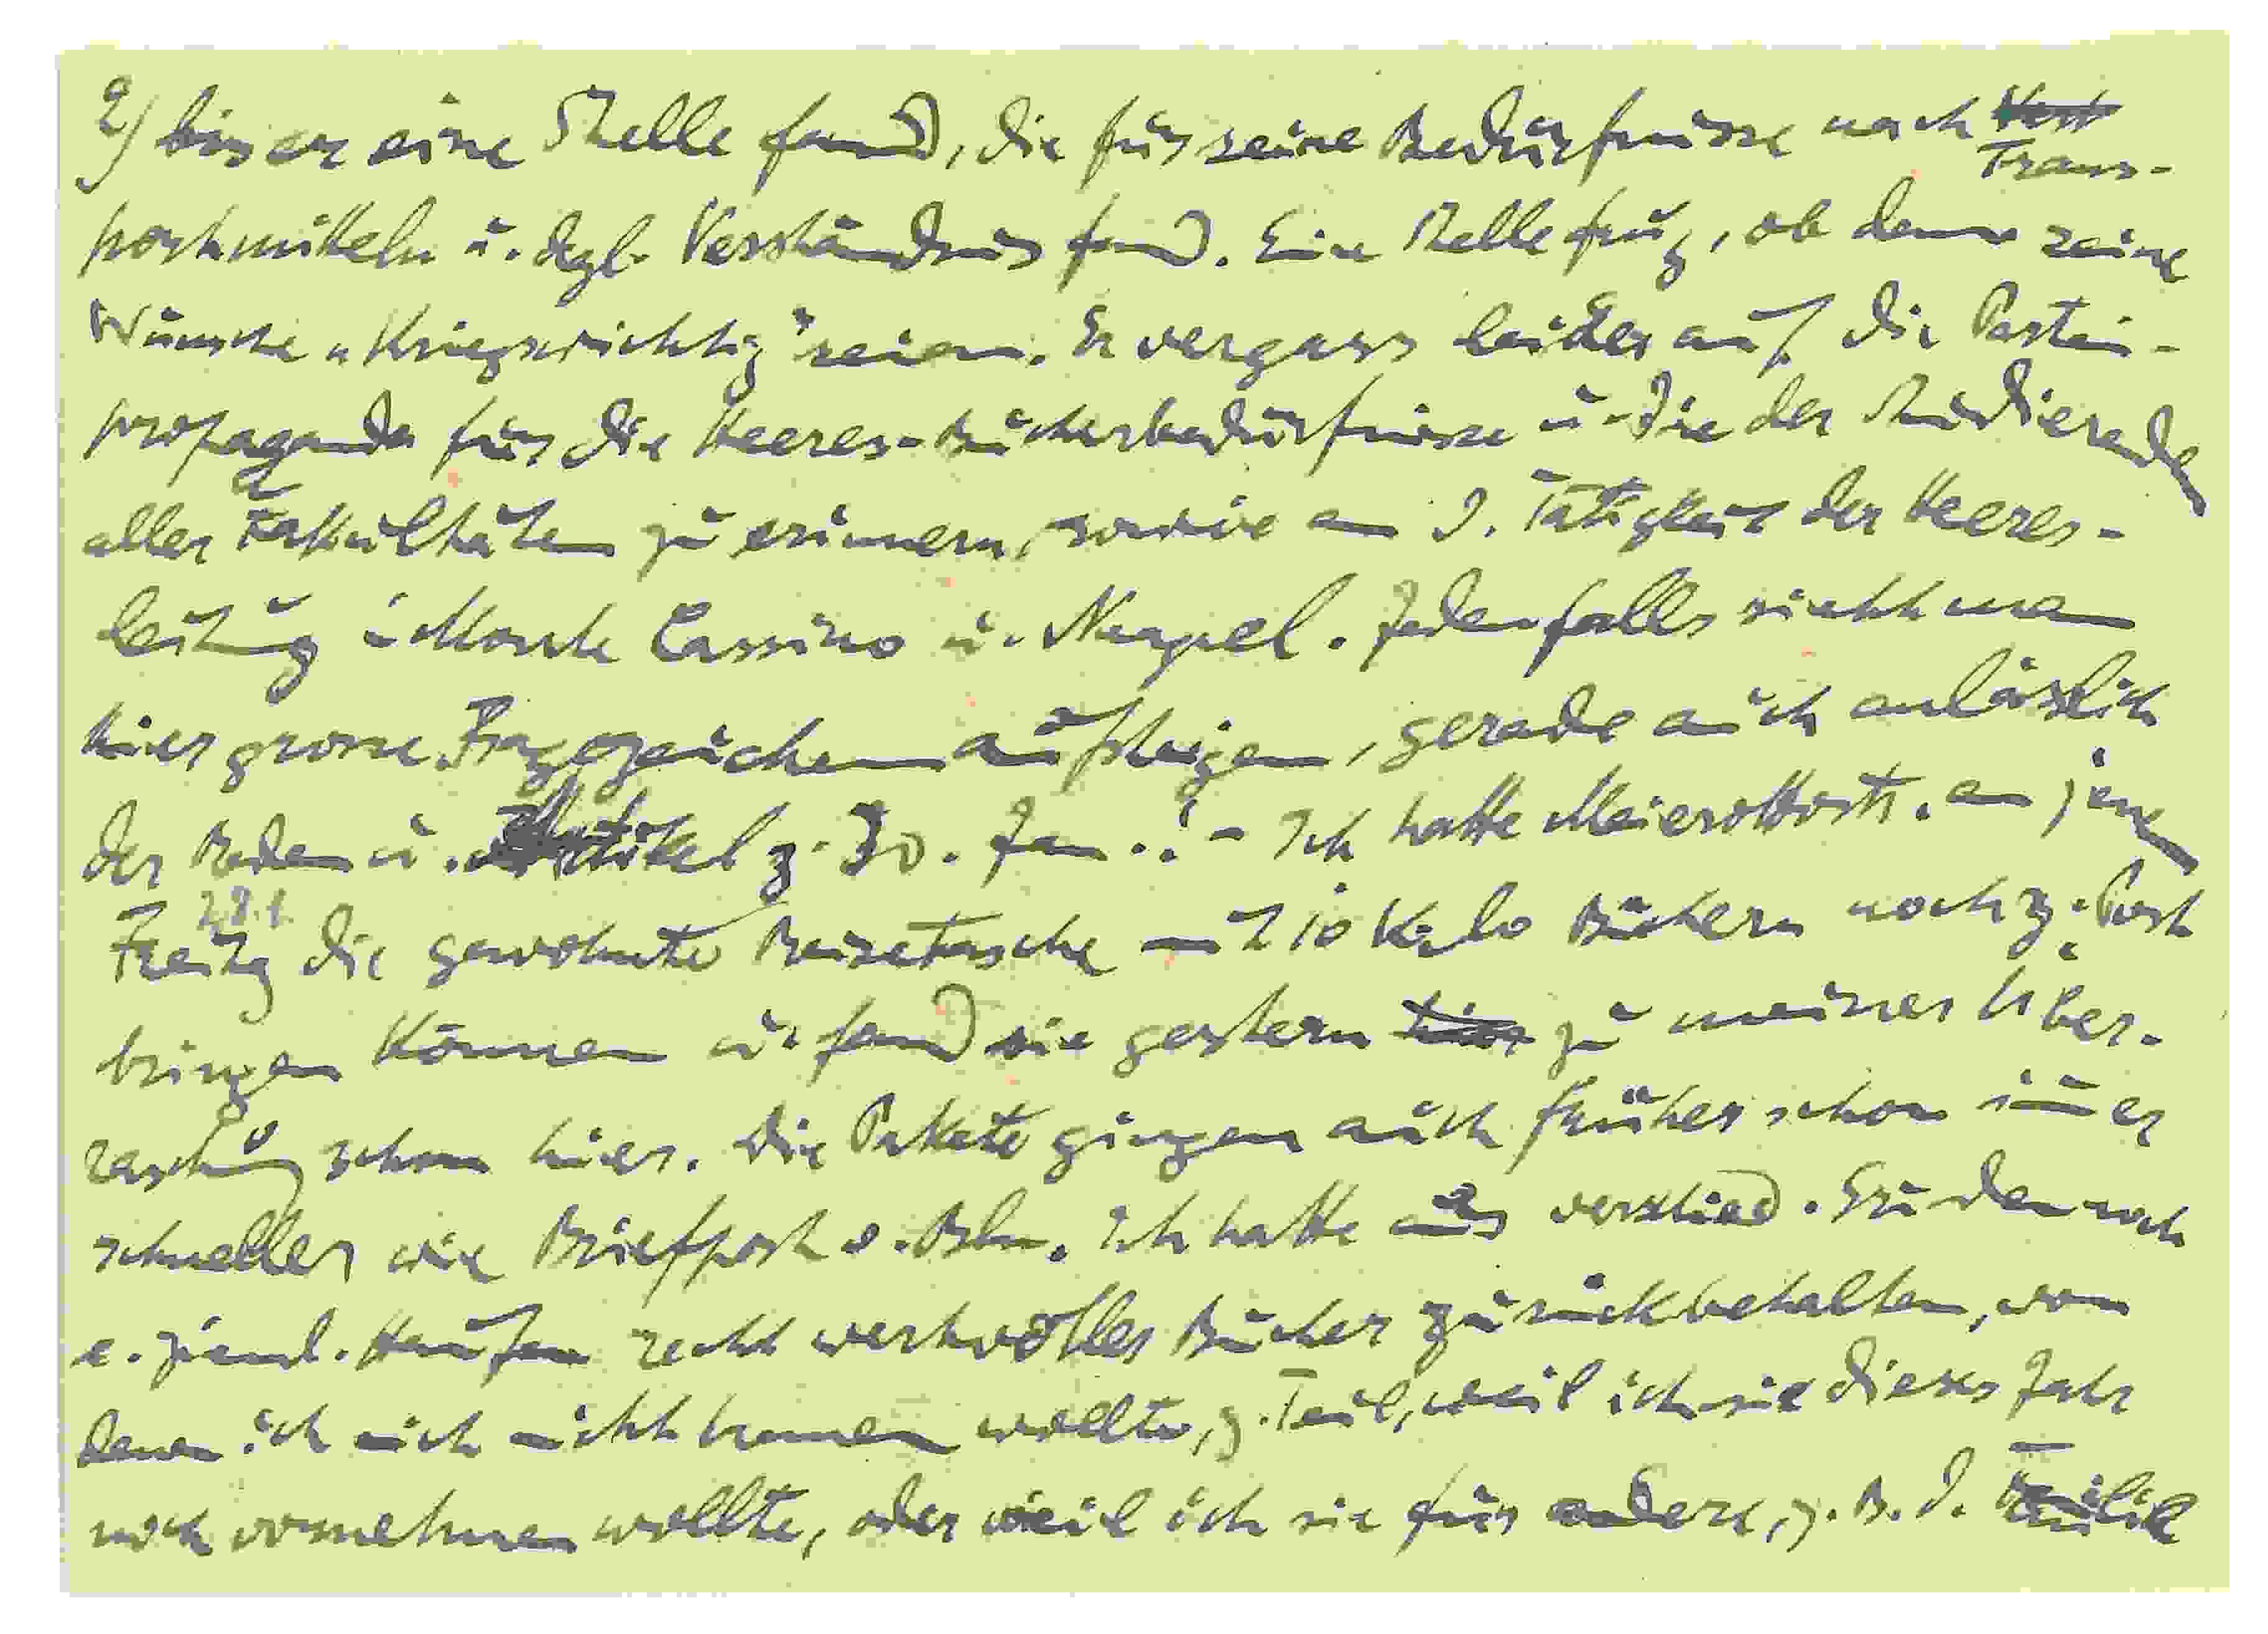 2) bis er eine Stelle fand, die für seine Bedürfnisse nach Trans-
portmitteln u. dgl. Verständnis fand. Eine Stelle frug, ob denn seine
Wünsche "kriegswichtig" seien. Er vergass leider auf die Partei-
propaganda für die Heeres-Bücherbedürfnisse u. die der Studierenden
aller Fakultäten zu erinnern, sowie an d. Tätigkeit der Heeres-
leitung i. Monte Cassino u. Neapel. Jedenfalls sieht man
hier grosse Fragezeichen aufsteigen, gerade auch anlässlich
der Reden u. Artikel z. 30. Jan..! - Ich hatte Meierottostr. an jenem
Freitag 28.1. die gewohnte Reisetasche mit 10 Kilo Büchern noch z. Post
bringen können u. fand sie gestern zu meiner Über-
raschung schon hier. Die Pakete gingen auch früher schon immer
schneller wie Briefpost v. Bln. Ich hatte aus verschied. Gründen noch
e. zieml. Haufen recht wertvoller Bücher zurückbehalten, von
denen ich mich nicht trennen wollte, z. Teil, weil ich sie dieses Jahr
noch vornehmen wollte, oder weil ich sie für andere, z. B. d. Familie